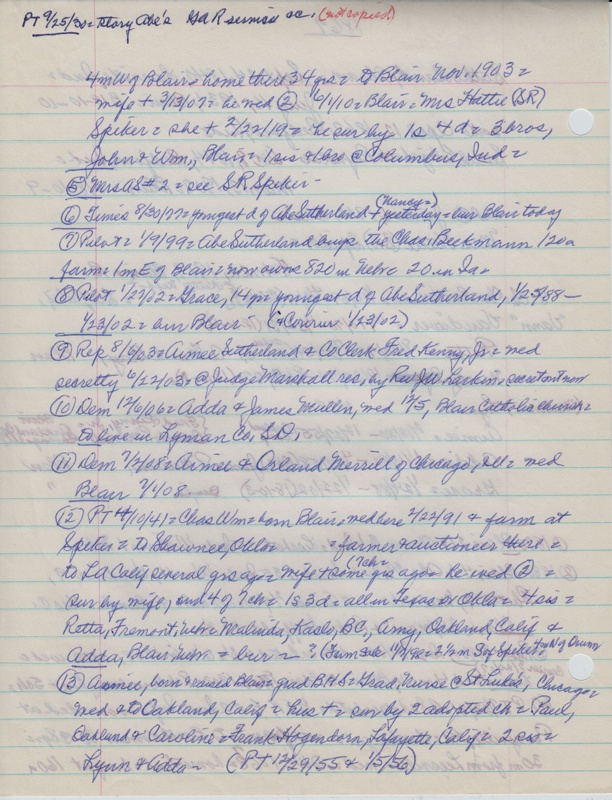 PT 9/25/30 = Story Abe's GAR service etc. (not copied)
4 mW of Blair = home there 34 yrs = to Blair Nov. 1903 =
wife + 3/13/07 = he wed ② 6/1/10 = Blair = Mrs Hattie (SR)
Spiker = she + 2/22/19 = he sur by 1s 4d = 3 bros,
John & Wm, Blair = 1 sis & bro @ Columbus, Ind =
⑤ Mrs AS #2 = see SR Spiker -
⑥ Times 8/30/77 = youngest d of Abe Sutherland + (Nancy =) yesterday = bur Blair today
⑦ Pilot = 1/9/99 = Abe Sutherland buys the Chas. Beckmann 120a
farm = 1 m E of Blair = now owns 820 in Nebr 20 in Ia =
⑧ Pilot 1/22/02 = Grace, 14 yr youngest d of Abe Sutherland, 1/25/88 -
1/23/02 = bur Blair - (& Courier 1/23/02)
⑨ Rep 8/6/03 = Aimee Sutherland & Co Clerk Fred Kenny, Jr = wed
secretly 6/22/03 = @ Judge Marshall res, by Rev JW Larkin = secret out now
⑩ Dem 12/6/06 = Adda & James Mullen, wed 12/5, Blair Catholic church =
to live in Lyman Co, S.D.,
⑪ Dem 7/2/08 = Aimee & Orland Merrill of Chicago, Ill = wed
Blair 7/1/08
⑫ PT 4/10/41 = Chas Wm = born Blair = wed here 2/22/91 & farm at
Spiker = to Shawnee, Okla = = farmer & auctioneer there =
to LA Calif several yrs ago = wife + some yrs ago = (7 ch =) he wed ② =
sur by wife, and 4 of 7 ch = 1s 3d = all in Texas or Okla = 4 sis =
Retta, Fremont, Nebr = Malinda, Kaslo, BC,, Amy, Oakland, Calif &
Adda, Blair Nebr = bur = ? (Farm sale 2 1/2 m So of Spiker
⑬ Aimee, born & raised Blair = grad BHS = Grad. Nurse @ St Luke's, Chicago =
wed & to Oakland, Calif = hus + = sur by 2 adopted ch = Paul,
Oakland & Caroline = Frank Hogendorn, Lafayette, Calif = 2 sis =
Lynn & Adda = (PT 12/29/55 & 1/5/56)